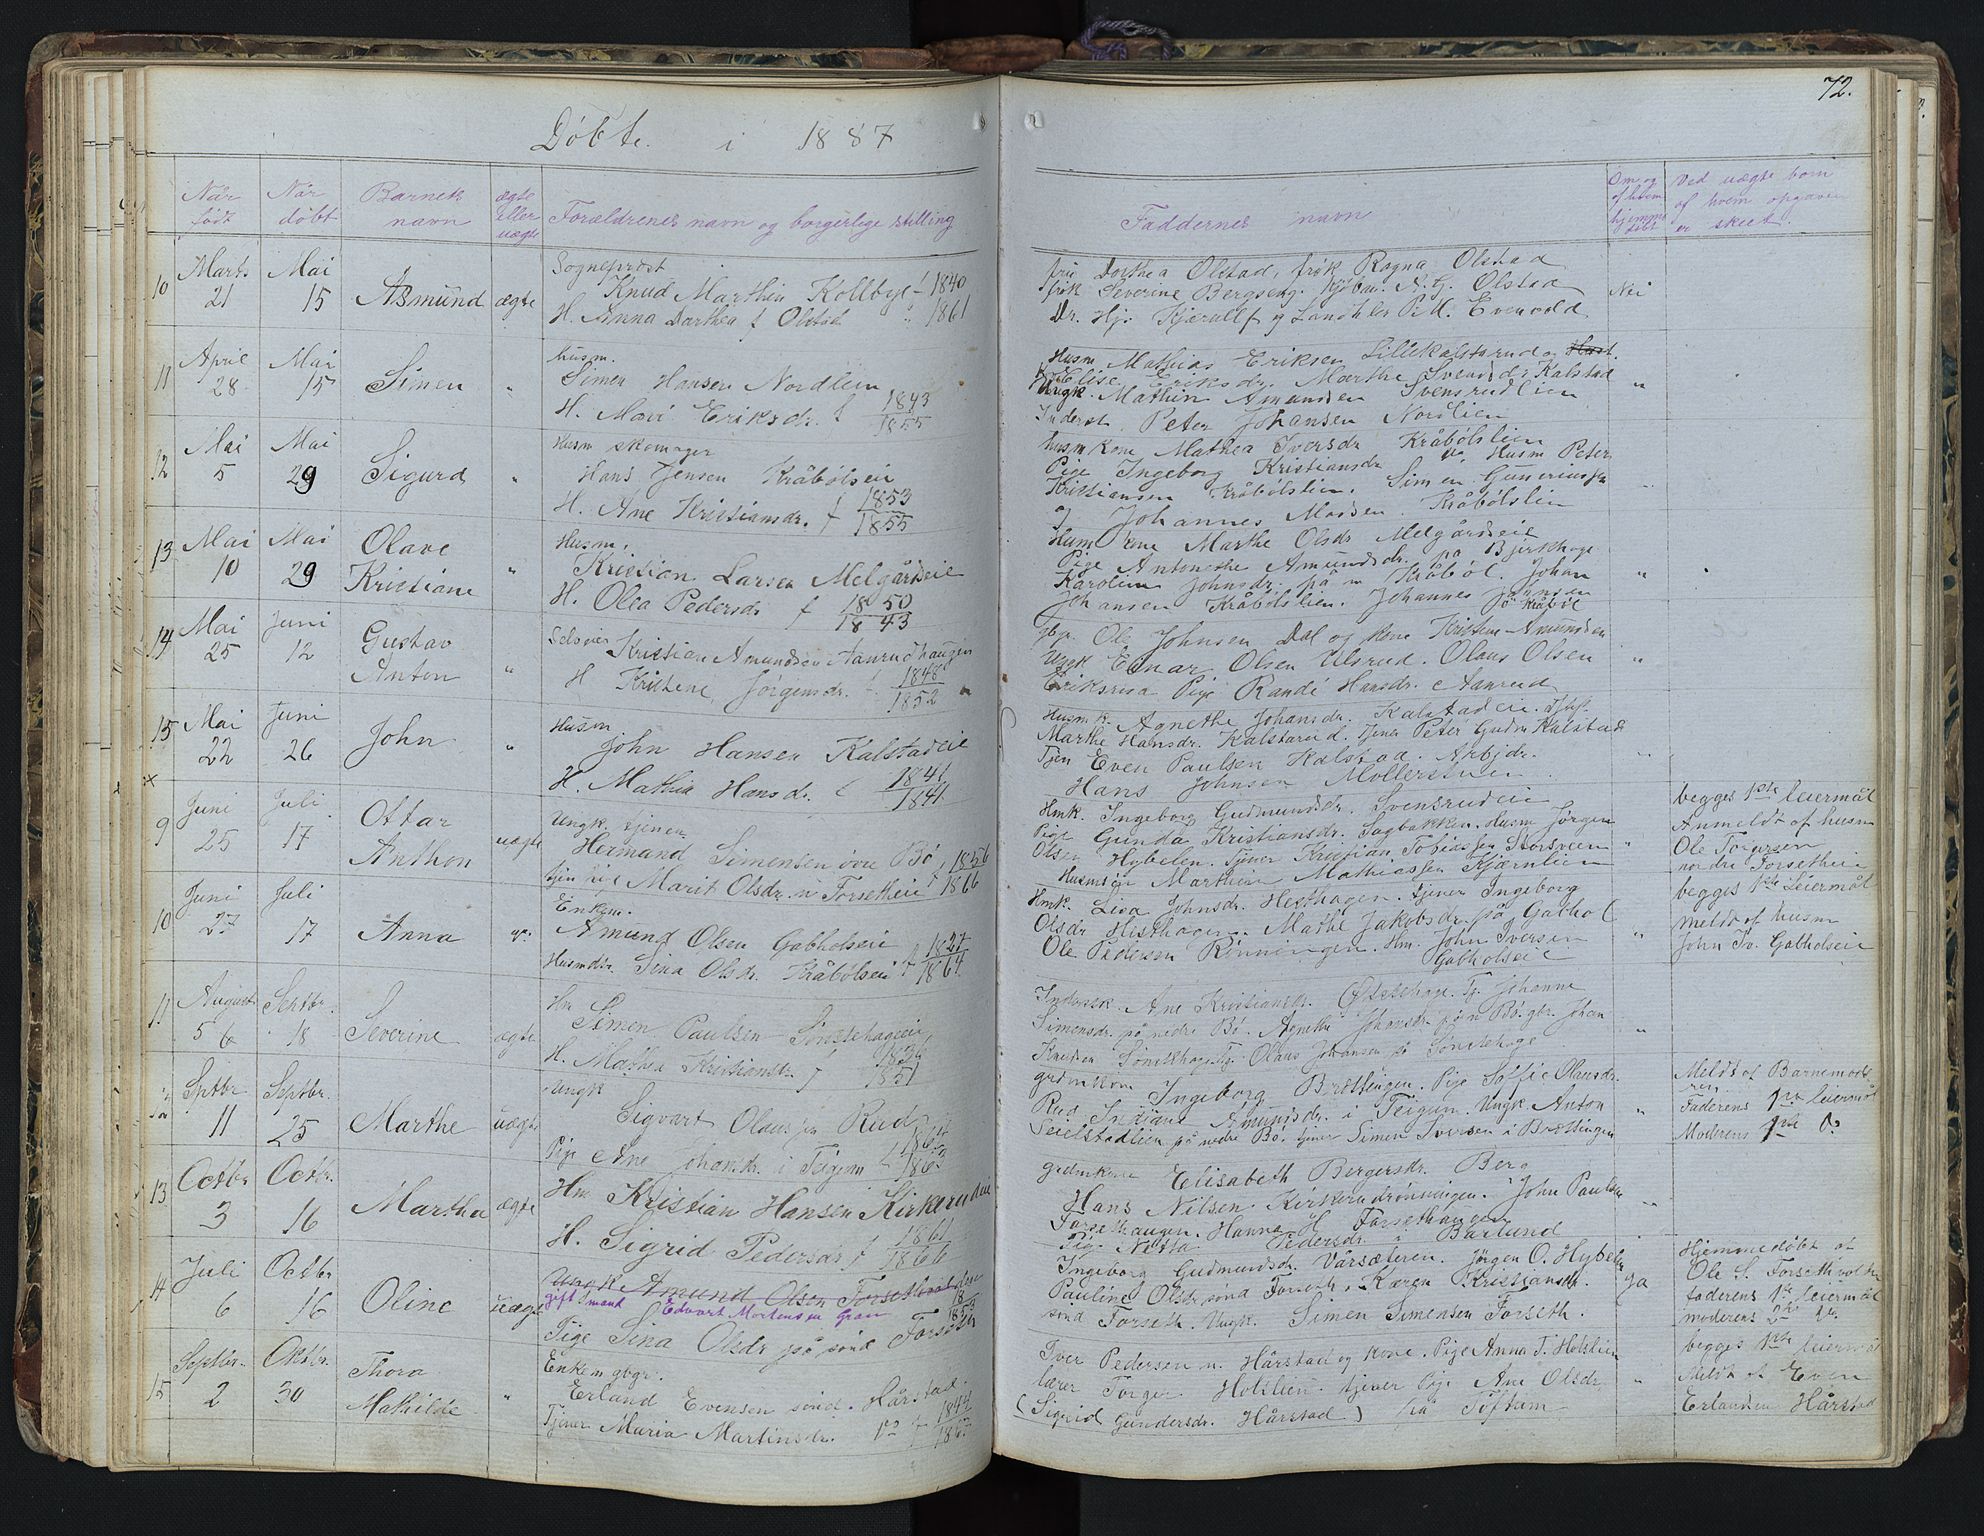 72.
Døbte i 1887
Når født
Når døbt
Barnets navn
ægte eller uægte
Forældrenes navn og borgerlige stilling
Faddernes navn
Om og af hvem hjemmedøbt
Ved uægte børn af hvem opgaven er skeet.
10
Marts 21
Mai 15
Asmund
ægte
Sogneprost
Knud Marthin Kollbye 1840
H. Anna Darthea f Olstad 1861
fru Dorthea Olstad, frøk Ragna Olstad
frøk Severine Bergseng. N. G. Olstad
Dr. Hj. Kjærulf og Landhl. P. M. Evenvold
Nei
11
April 28
Mai 15
Simen
"
husm.
Simen Hansen Nordlien
H. Mari Eriksdr. f 1843
1855
Husm Mathias Eriksen Lillekalstarud og
Elise Eriksdr. Marthe Svendsdr Kalstad
Ungk. Mathin Amundsen Svensrudlien
Inderst Peter Johansen Nordlien
"
12
Mai 5
Mai 29
Sigurd
"
Husm skomager
Hans Jensen Kråbølseie
H. Ane Kristiansdr. f 1853
1855
husm kone Mathea Iversdr Kråbølslien
Pige Ingeborg Kristiansdr pa Husm Peter
Kristiansen Kråbølslien. Simen Gunerius
og Johannes Madsen. Kråbølslien
13
Mai 10
Mai 29
Olave
Kristiane
"
Husm.
Kristian Larsen Melgårdseie
H. Olea Pedersdr f 1850
1843
Husm Kone Marthe Olsdr Melgårdseie
Pige Antonethe Amundsdr. pa Bjerkehage
Karolin Johnsdr. på n Kråbøl. Johan
Johansen Kråbølslien. Johannes Jønsen
Kråbøl
"
14
Mai 25
Juni 12
Gustav
Anton
"
Selveier
Kristian Amundsen Aanrudhaugen
H Kristene Jørgensdr. f. 1848
1852
gbr. Ole Johnsen Dal og Kone Kristine Amundsen
Ungk Einar Olsen Ulsrud. Olaus Olsen
Eriksrud Pige Randi Hansdr. Aanrud
"
15
Mai 22
Juni 26
John
"
Husm
John Hansen Kalstadeie
H. Mathia Hansdr. f 1841
1841
Husm k. Agnethe Johansdr. Kalstadeie.
Marthe Hansdr. Kalstadeie. tjener Peter Gudm Kalstad
Tjen Even Paulsen Kalstad. Arbjdr.
Hans Johnsen Møllerstuen
"
9
Juni 25
Juli 17
Ottar
Anthon
uægte
Ungk. tjener
Hermand Simensen øvre Bø, 1856
tjen pige Marit Olsdr. n Forsetheie f 1866
Hmk. Ingeborg Gudmundsdr. Svensrudeie
Pige Gunda Kristiansdr. Sagbakken. Husm Jørgen
Olsen Hybelen. tjener Kristian Tobiassen Storsveen
Husmsøn Marthin Mathiassen Kjærnlien
"
begges 1ste leiermål
Anmeldt af husm
Ole Torgersen
nordre Forsetheie
10
Juni 27
Juli 17
Anna
Enkem.
Amund Olsen Gabholseie
Husmdtr. Sina Olsdr. Kråbølseie f 1827
1864
Hmk. Lisa Johnsdr. Hesthagen. tjener Ingeborg
Olsdr Hesthagen. Mathe Jakobsdr. på Gabhol
Ole Pedersen Rønningen. Hm. John Iversen
Gabholseie
"
begges 1ste Leiermål
Meldt af husm
John Iv. Gabholseie
11
August 5 6
Septbr. 18
Severine
ægte
Hm
Simen Paulsen Sønstehageeie
H. Mathea Kristiansdr. f 1836
1851
Inderstk. Ane Kristiansdr. Østetehage. Tj. Johanne
Simensdr. på nedre Bø. Agnethe Johansdr. på n Bø. gbr. Johan
Knudsen Sønstehage. Tj. Olaus Johansen på Sønstehage
"
Septbr 11
Septbr. 25
Marthe
uægte
Ungk
Sigvart Olaussen Rud
Pige Ane Johansdr. i Teigum f 1864
1863
gudmkom Ingeborg Brættingen. Pige Soffie Olausdr.
Rud Indiane Amundsdr. i Teigum. Ungk. Anton
Seielstadlien på nedre Bø. tjener Simen Iversen i Brættingen
"
Meldt af Barnemoderen
Faderens 1ste leiermål
Moderens 1ste Do
13
Octbr. 3
Octbr. 16
Marthea
ægte
Hm Kristian Hansen Kirkerudeie
H. Sigrid Pedersdr f 1861
1866
gudmkone Elisabeth Bergersdr. Berg
Hans Nilsen Kirkerudrønningen. John Paulsen
Forsethaugen. Hanna H. Forsethaugen
Pige Netta Pedersdr. i Barlund
"
14
Juli 6
Octbr. 16
Oline
uægte
Ungk Amund Olsen Forseth
gift mand Edvart Mortensen Grav
Pige Sina Olsdr på sønd Forseth
18
1853
Ingeborg Gudmundsdr. Vårsæteren. Jørgen O. Hybelen
Pauline Olsdr sønd Forseth, Karen Kristiansdr.
sønd Forseth. Ungk. Simen Simensen Forseth.
Ja
Hjemmedøbt af
Ole S. Forsethvolden
faderens 1ste leiermål
moderens 2det do.
15
Septbr. 2
Oktbr. 30
Thora
Mathilde
"
Enkem gbgr.
Erland Evensen sønd. Hårstad.
Tjener Maria Martinsdr. Do f 1844
1865
Iver Pedersen n. Hårstad og Kone. Pige Anna T. Holslien
lærer Torger Holslien. tjener Pige Ane Olsdr
(Sigrid Gundersdr. Hårstad) på Toftum
"
begges 1ste leiermål
Meldt af Even
Erlandsen Hårstad